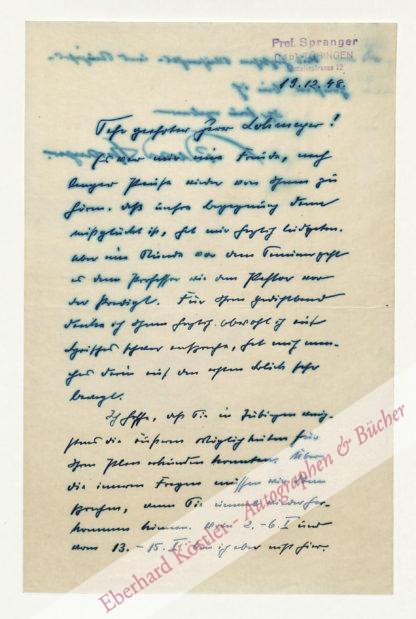 Prof. Spranger
TÜBINGEN
19.12.48.
Sehr geehrter Herr Lohmeyer!
Es war mir eine Freude, nach
langer Pause wieder von Ihnen zu
hören. Daß unsre Begegnung dann
mißglückt ist, hat mir herzlich leidgetan.
Aber eine Stunde vor dem Termin geht
es dem Professor wie dem Pastor vor
der Predigt. Für Ihren Gedichtband
danke ich Ihnen herzlich. Obwohl ich auf
Lyrisches schwer anspreche, hat mich man-
ches darin auf den ersten Blick sehr
bewegt.
Ich hoffe, daß Sie in Tübingen wenig-
stens die äußeren Möglichkeiten für
Ihren Plan erkunden konnten. Über
die inneren Fragen müssen wir
sprechen, wenn Sie einmal wieder her-
kommen können. Vom 2.-6. I und
vom 13.-15. I. bin ich aber nicht hier.
Eberhard Köstler - Autographen & Bücher